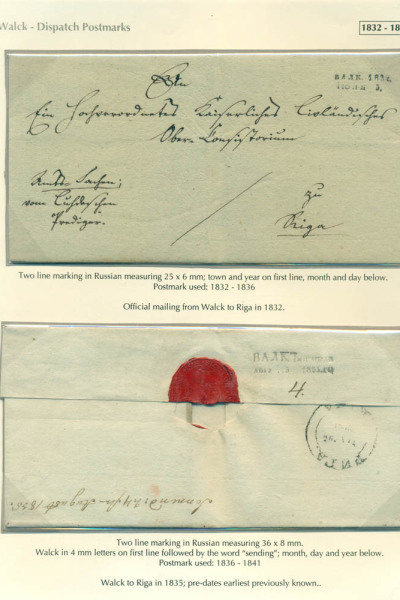 Walck - Dispatch Postmarks
1832 - 18
ВАЛК. 1832
An
Ein Hochverordnetes Kaiserliches Livländisches
Ober-Consistorium
Amts-Sachen;
vom Luhdeschen
Prediger.
zu
Riga
Two line marking in Russian measuring 25 x 6 mm; town and year on first line, month and day below.
Postmark used: 1832 - 1836
Official mailing from Walck to Riga in 1832.
ВАЛК
1835
4.
August 1835.
Two line marking in Russian measuring 36 x 8 mm.
Walck in 4 mm letters on first line followed by the word "sending"; month, day and year below.
Postmark used: 1836 - 1841
Walck to Riga in 1835; pre-dates earliest previously known..